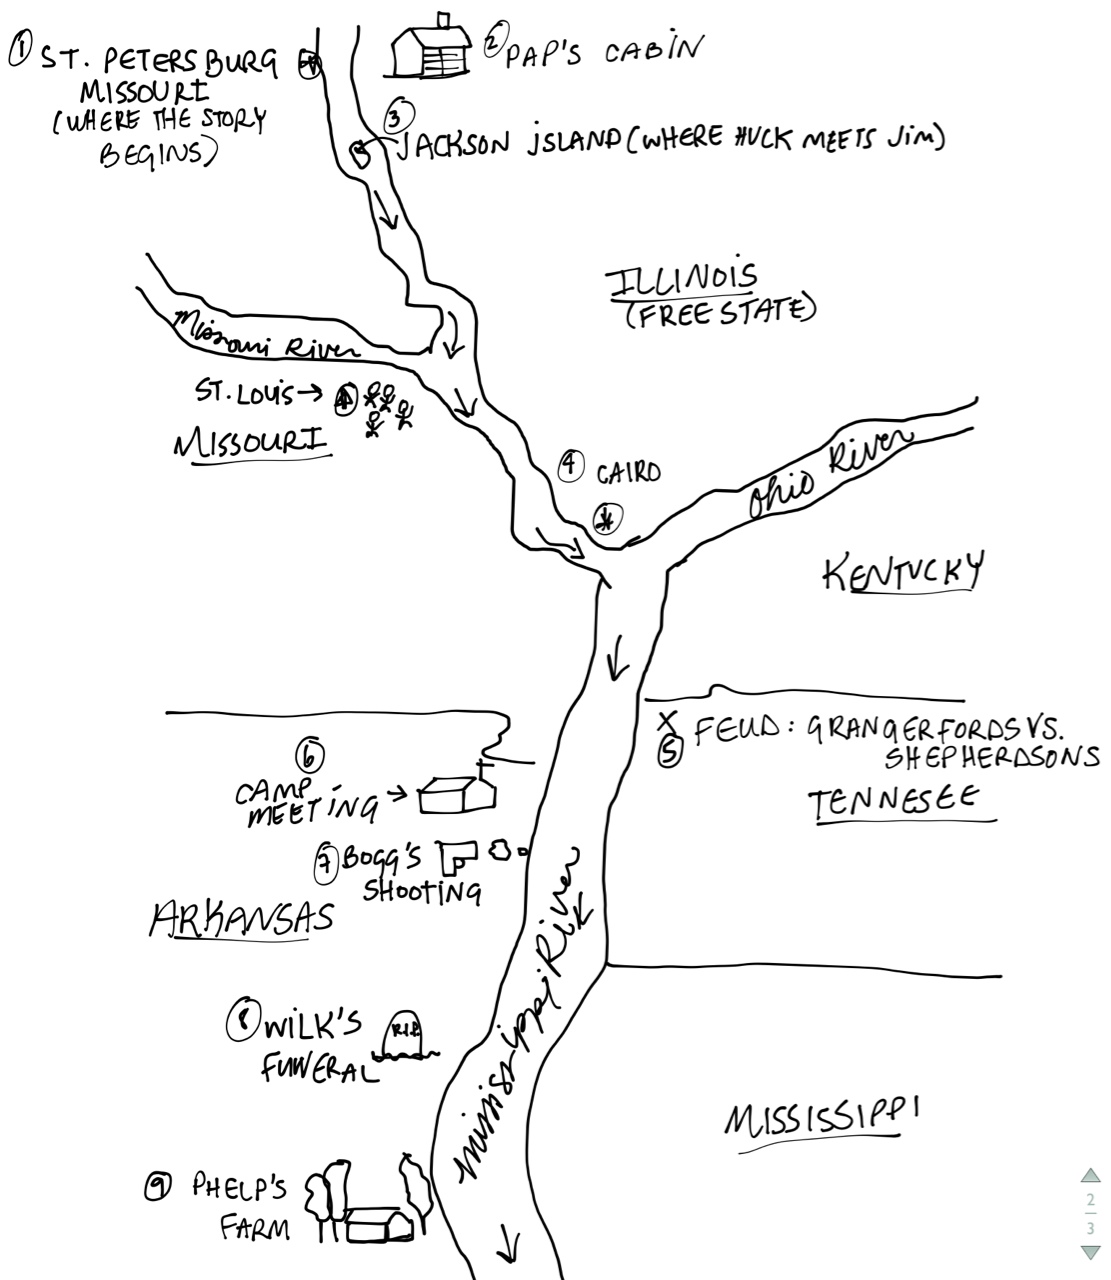 ① ST. PETERSBURG
MISSOURI
(WHERE THE STORY
BEGINS)
② PAP'S CABIN
③
JACKSON ISLAND (WHERE HUCK MEETS JIM)
ILLINOIS
(FREE STATE)
Missouri River
ST. LOUIS →
MISSOURI
④ CAIRO
Ohio River
KENTUCKY
X
⑤ FEUD: GRANGERFORDS VS.
SHEPHERDSONS
TENNESEE
⑥
CAMP
MEETING →
⑦ BOGG'S
SHOOTING
ARKANSAS
Mississippi River
⑧ WILK'S
FUNERAL
R.I.P.
MISSISSIPPI
⑨ PHELP'S
FARM
2
3